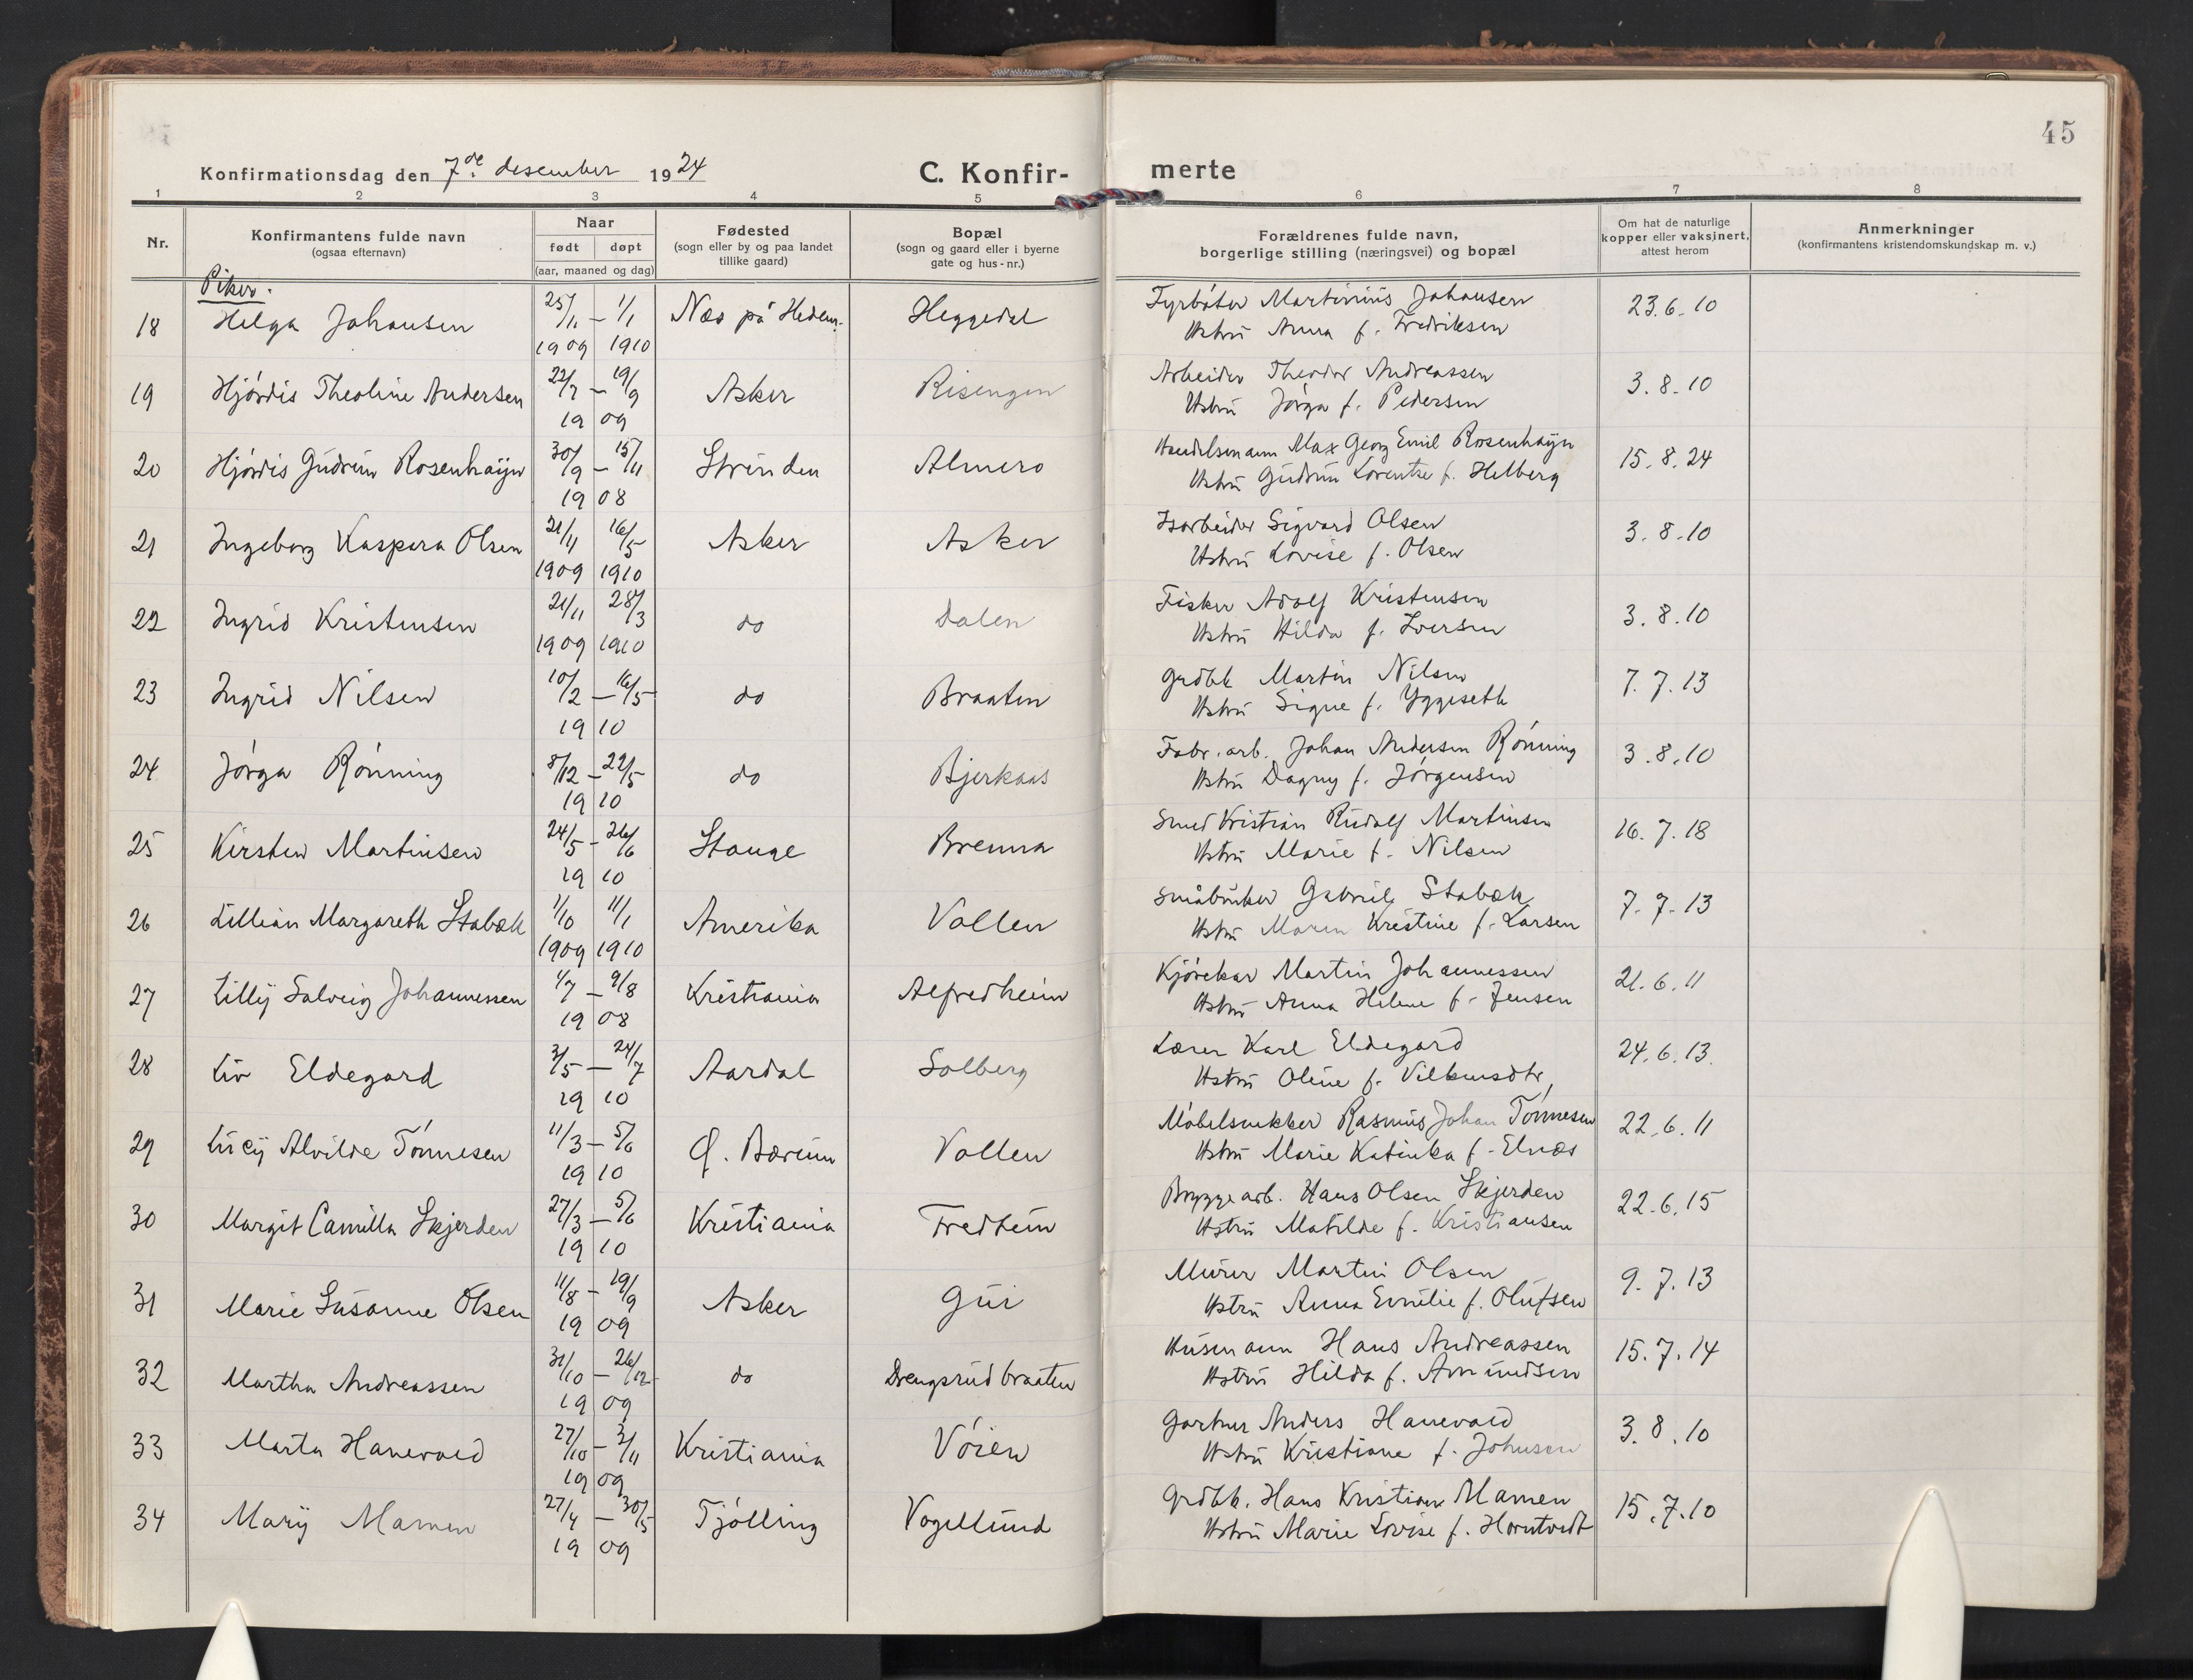 45
Konfirmationsdag den 7de desember 1924
C. Konfir-
merte
1 2 3 4 5 6 7 8
Nr.
Konfirmantens fulde navn
(ogsaa efternavn)
Naar
født døpt
(aar, maaned og dag)
Fødested
(sogn eller by og paa landet
tillike gaard)
Bopæl
(sogn og gaard eller i byerne
gate og hus-nr.)
Forældrenes fulde navn,
borgerlige stilling (næringsvei) og bopæl
Om hat de naturlige
kopper eller vaksinert,
attest herom
Anmerkninger
(konfirmantens kristendomskundskap m. v.)
Piker.
18 Helga Johansen 25/11 – 1/1 Næs på Hedem. Heggedal Fyrbøter Martinius Johansen 23.6.10
1909 1910 Hstrú Anna f. Fredriksen
19 Hjórdis Theoline Andersen 22/7 – 19/9 Asker Risengen Arbeider Theodor Andreassen 3.8.10
1909 Hstrú Jórga f. Pedersen
20 Hjórdis Gúdrún Rosenhaÿn 30/9 – 15/11 Strinden Almero Handelsmann Max Georg Emil Rosenhaÿn 15.8.24
1908 Hstrú Gúdrún Lorentse f. Helberg
21 Ingeborg Kaspara Olsen 21/11 16/5 Asker Asker Isarbeider Sigvard Olsen 3.8.10
1909 1910 Hstrú Lovise f. Olsen
22 Ingrid Kristensen 21/11 28/3 do Dalen Fisker Adolf Kristensen 3.8.10
1909 1910 Hstrú Hilda f. Iversen
23 Ingrid Nilsen 10/2 – 16/5 do Braaten Grdbk Martin Nilsen 7.7.13
1910 Hstrú Signe f. Yggeseth
24 Jórga Rónning 8/12 – 22/5 do Bjerkaas Fabr.arb. Johan Andersen Rónning 3.8.10
1910 Hstrú Dagny f. Jórgensen
25 Kirsten Martinsen 24/5 – 26/6 Stange Brenna Smed Kristian Rúdolf Martinsen 16.7.18
1910 Hstrú Marie f. Nilsen
26 Lillian Margareth Stabæk 1/10 11/1 Amerika Vollen Småbrúker Gabriel Stabæk 7.7.13
1909 1910 Hstrú Maren Kristine f. Larsen
27 Lillÿ Solveig Johannessen 1/7 – 9/8 Kristiania Alfredheim Kjórekar Martin Johannessen 21.6.11
1908 Hstrú Anna Helene f. Jensen
28 Liv Eldegard 3/5 – 24/7 Aardal Solberg Lærer Karl Eldegard 24.6.13.
1910 Hstrú Oline f. Vilkensdtr,
29 Lúcÿ Alvilde Tónnesen 11/3 – 5/6 Ø. Bærúm Vollen Móbelsnekker Rasmús Johan Tónnesen 22.6.11
1910 Hstrú Marie Katinka f. Elnæs
30 Margit Camilla Skjerden 27/3 – 5/6 Kristiania Fredheim Bryggearb. Hans Olsen Skjerden 22.6.15
1910 Hstrú Matilde f. Kristiansen
31 Marie Súsanne Olsen 11/8 – 19/9 Asker Gúi Múrer Martin Olsen 9.7.13
1909 Hstrú Anna Emilie f. Olúfsen
32 Martha Andreassen 31/10 – 26/12 do Drengsrúdbraaten Húsmann Hans Andreassen 15.7.14
1909 Hstrú Hilda f. Amúndsen
33 Marta Hanevold 27/10 – 3/11 Kristiania Vóien Gartner Anders Hanevold 3.8.10
1909 Hstrú Kristiane f. Johnsen
34 Marÿ Mamen 27/4 – 30/5 Tjólling Vogellúnd Grdbk. Hans Kristian Mamen 15.7.10
1909 Hstrú Marie Lovise f. Horntvedt